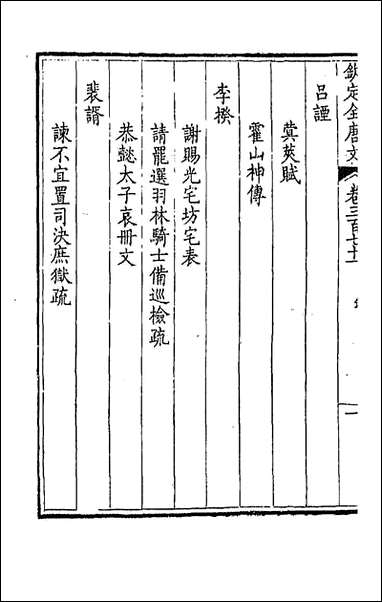 欽定全唐文 卷三百七十一 目 一
呂諲
蓂莢賦
霍山神傳
李揆
謝賜光宅坊宅表
請罷選羽林騎士備巡檢疏
恭懿太子哀冊文
裴諝
諫不宜置司決庶獄疏